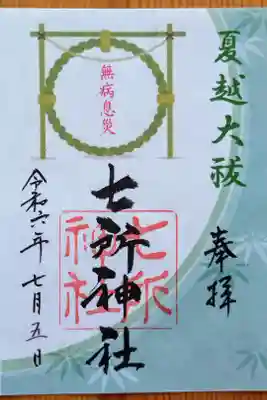 夏越大祓
奉拝
無病息災
七所神社
七所神社
令和六年七月五日